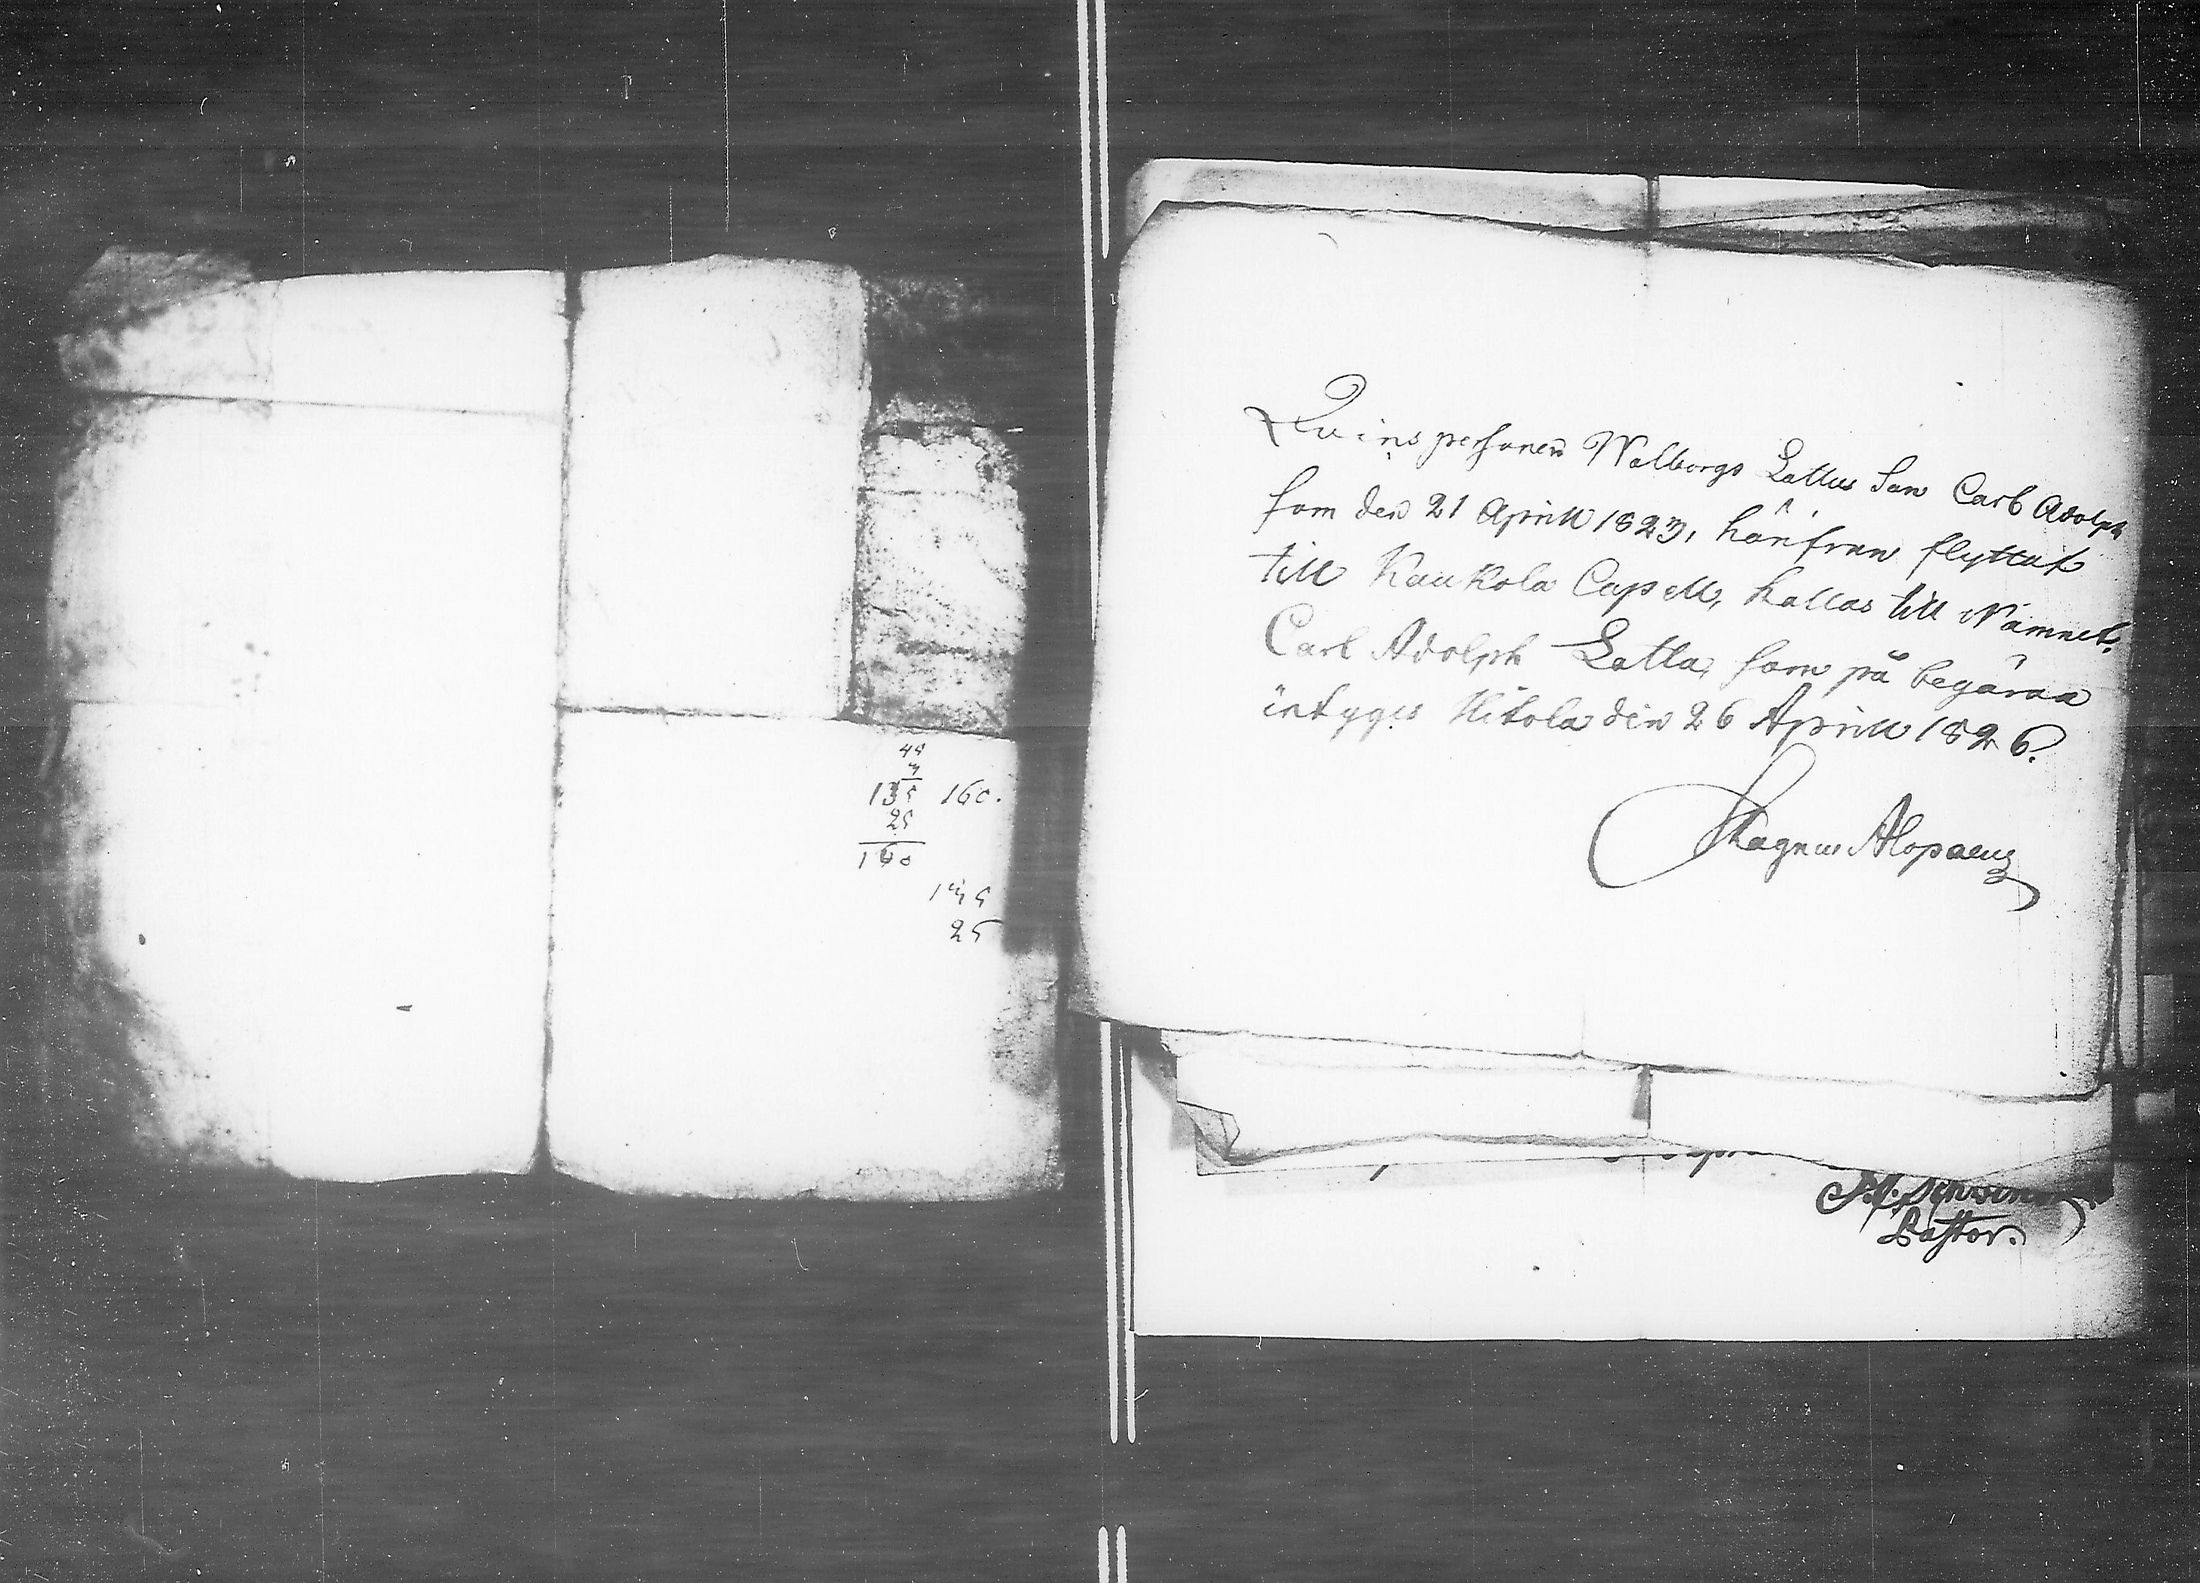 45
3
135 160.
25
160
135
25
Qvinspersonen Walborgs Lattus Son Carl Adolph
som den 21 Aprill 1823, hänfrån flyttat
till Kaukola Capell, kallas till Namnet
Carl Adolph Latta, som på begäran
intyges Hitola den 26 Aprill 1826.
Magnus Alopaeus
Pastor.